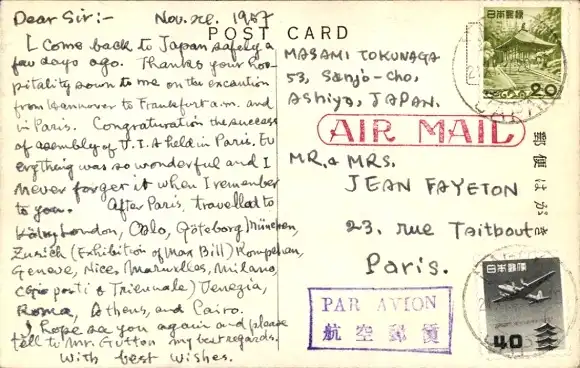 POST CARD
Dear Sir:- Nov. 1957
I come back to Japan safely a
few days ago. Thanks your hos-
pitality down to me on the excaution
from Hannover to Frankfurt a.m. and
in Paris. Congraturation the success
of assembly of U.I.A held in Paris. Ev
erything was so wonderful and I
never forger it when I remember
to you. After Paris, travelled to
London, Oslo, Göteborg München,
Zurich (Exhibition of Max Bill)
Geneve, Nice, Milano,
Triennale) Venezia,
Roma, Athens, and Cairo.
I hope see you again and please
tell to Mr. Gutton my best regards.
With best wishes.
MASAMI TOKUNAGA
53, Sanjo-cho,
Ashiya, JAPAN.
AIR MAIL
MR. & MRS.
JEAN FAYETON
23. rue Taitbout
Paris.
PAR AVION
航空郵便
郵便はがき
日本郵便
20
日本郵便
40